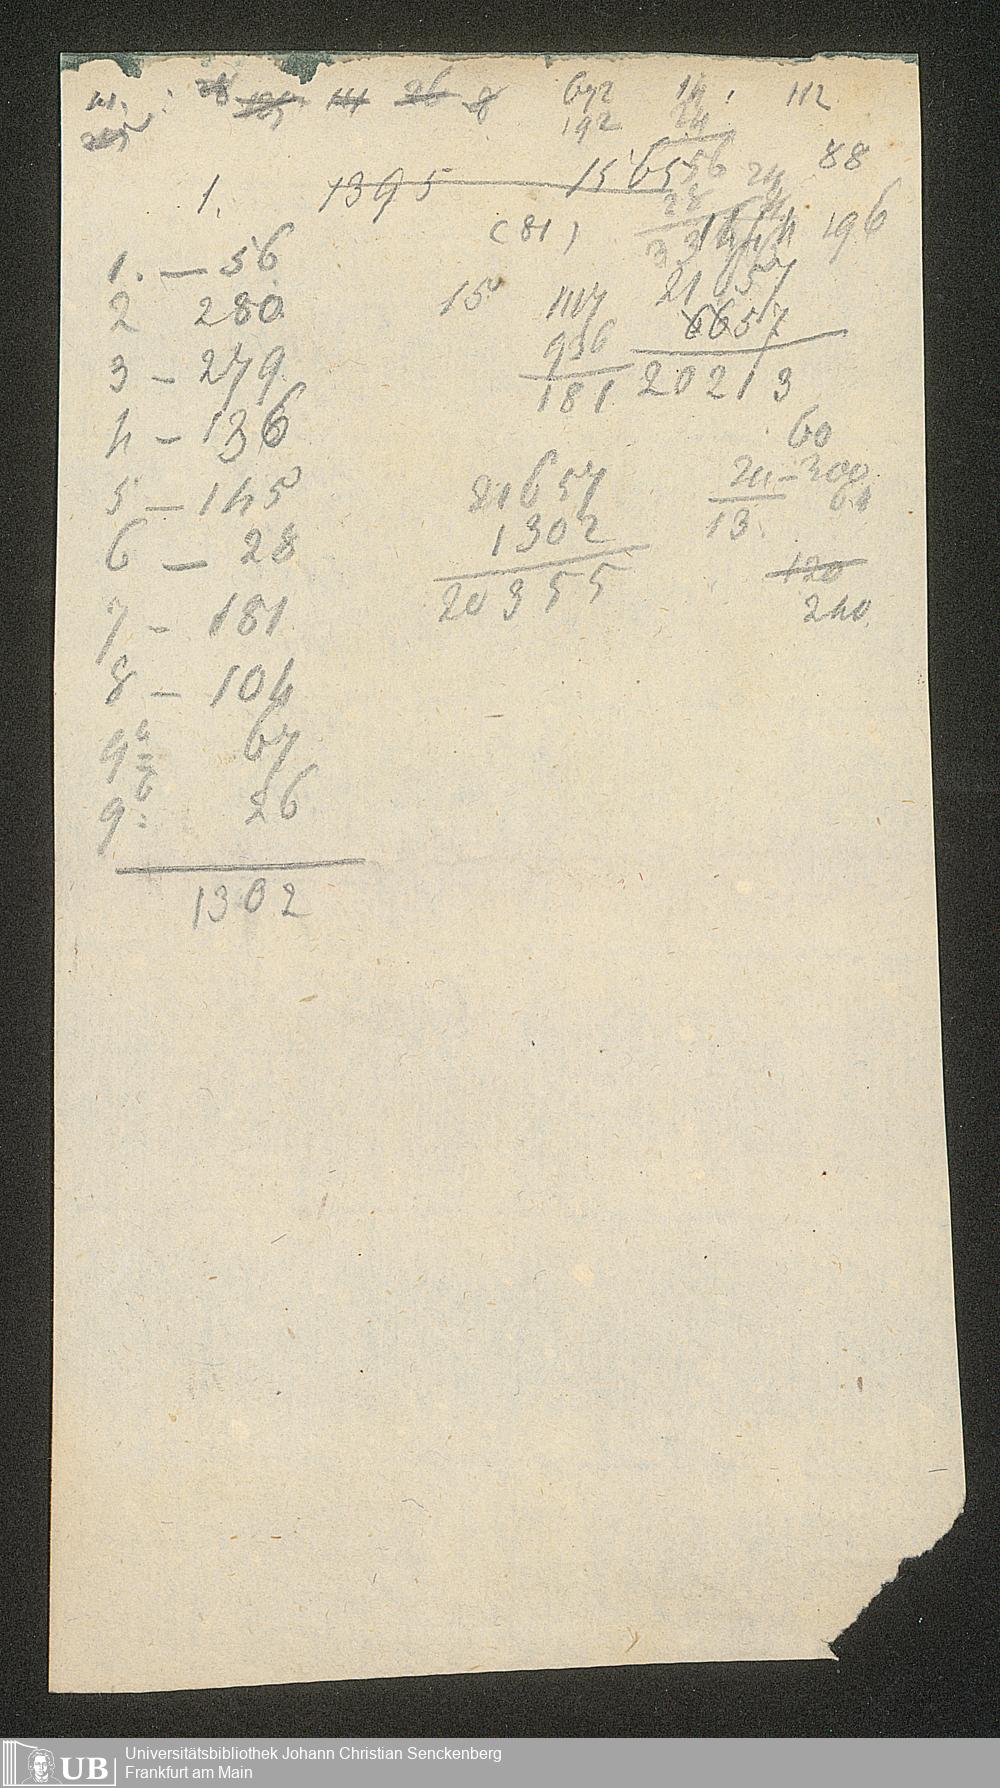 26 8 672 14 112
192 24
88
1. 1395 1565 56 24
28
(81) 196
1. — 56
2 280 15 1117 21657
936 6657
3 – 279 181 20213
4 – 136 60
5 — 145 21657 24 – 300
1302 13. 64
6 — 28 20355 120
7 – 181 240
8 – 104
9a 67
9b 26
1302
Universitätsbibliothek Johann Christian Senckenberg
UB Frankfurt am Main